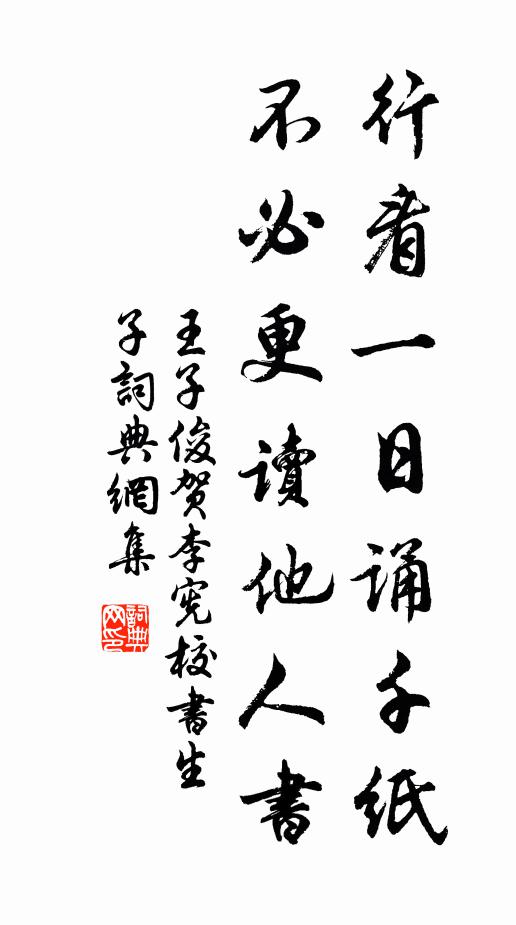 行看一日誦千紙
不必更讀他人書
王子俊贺李宪校書生
子詞典網集
詞典网印